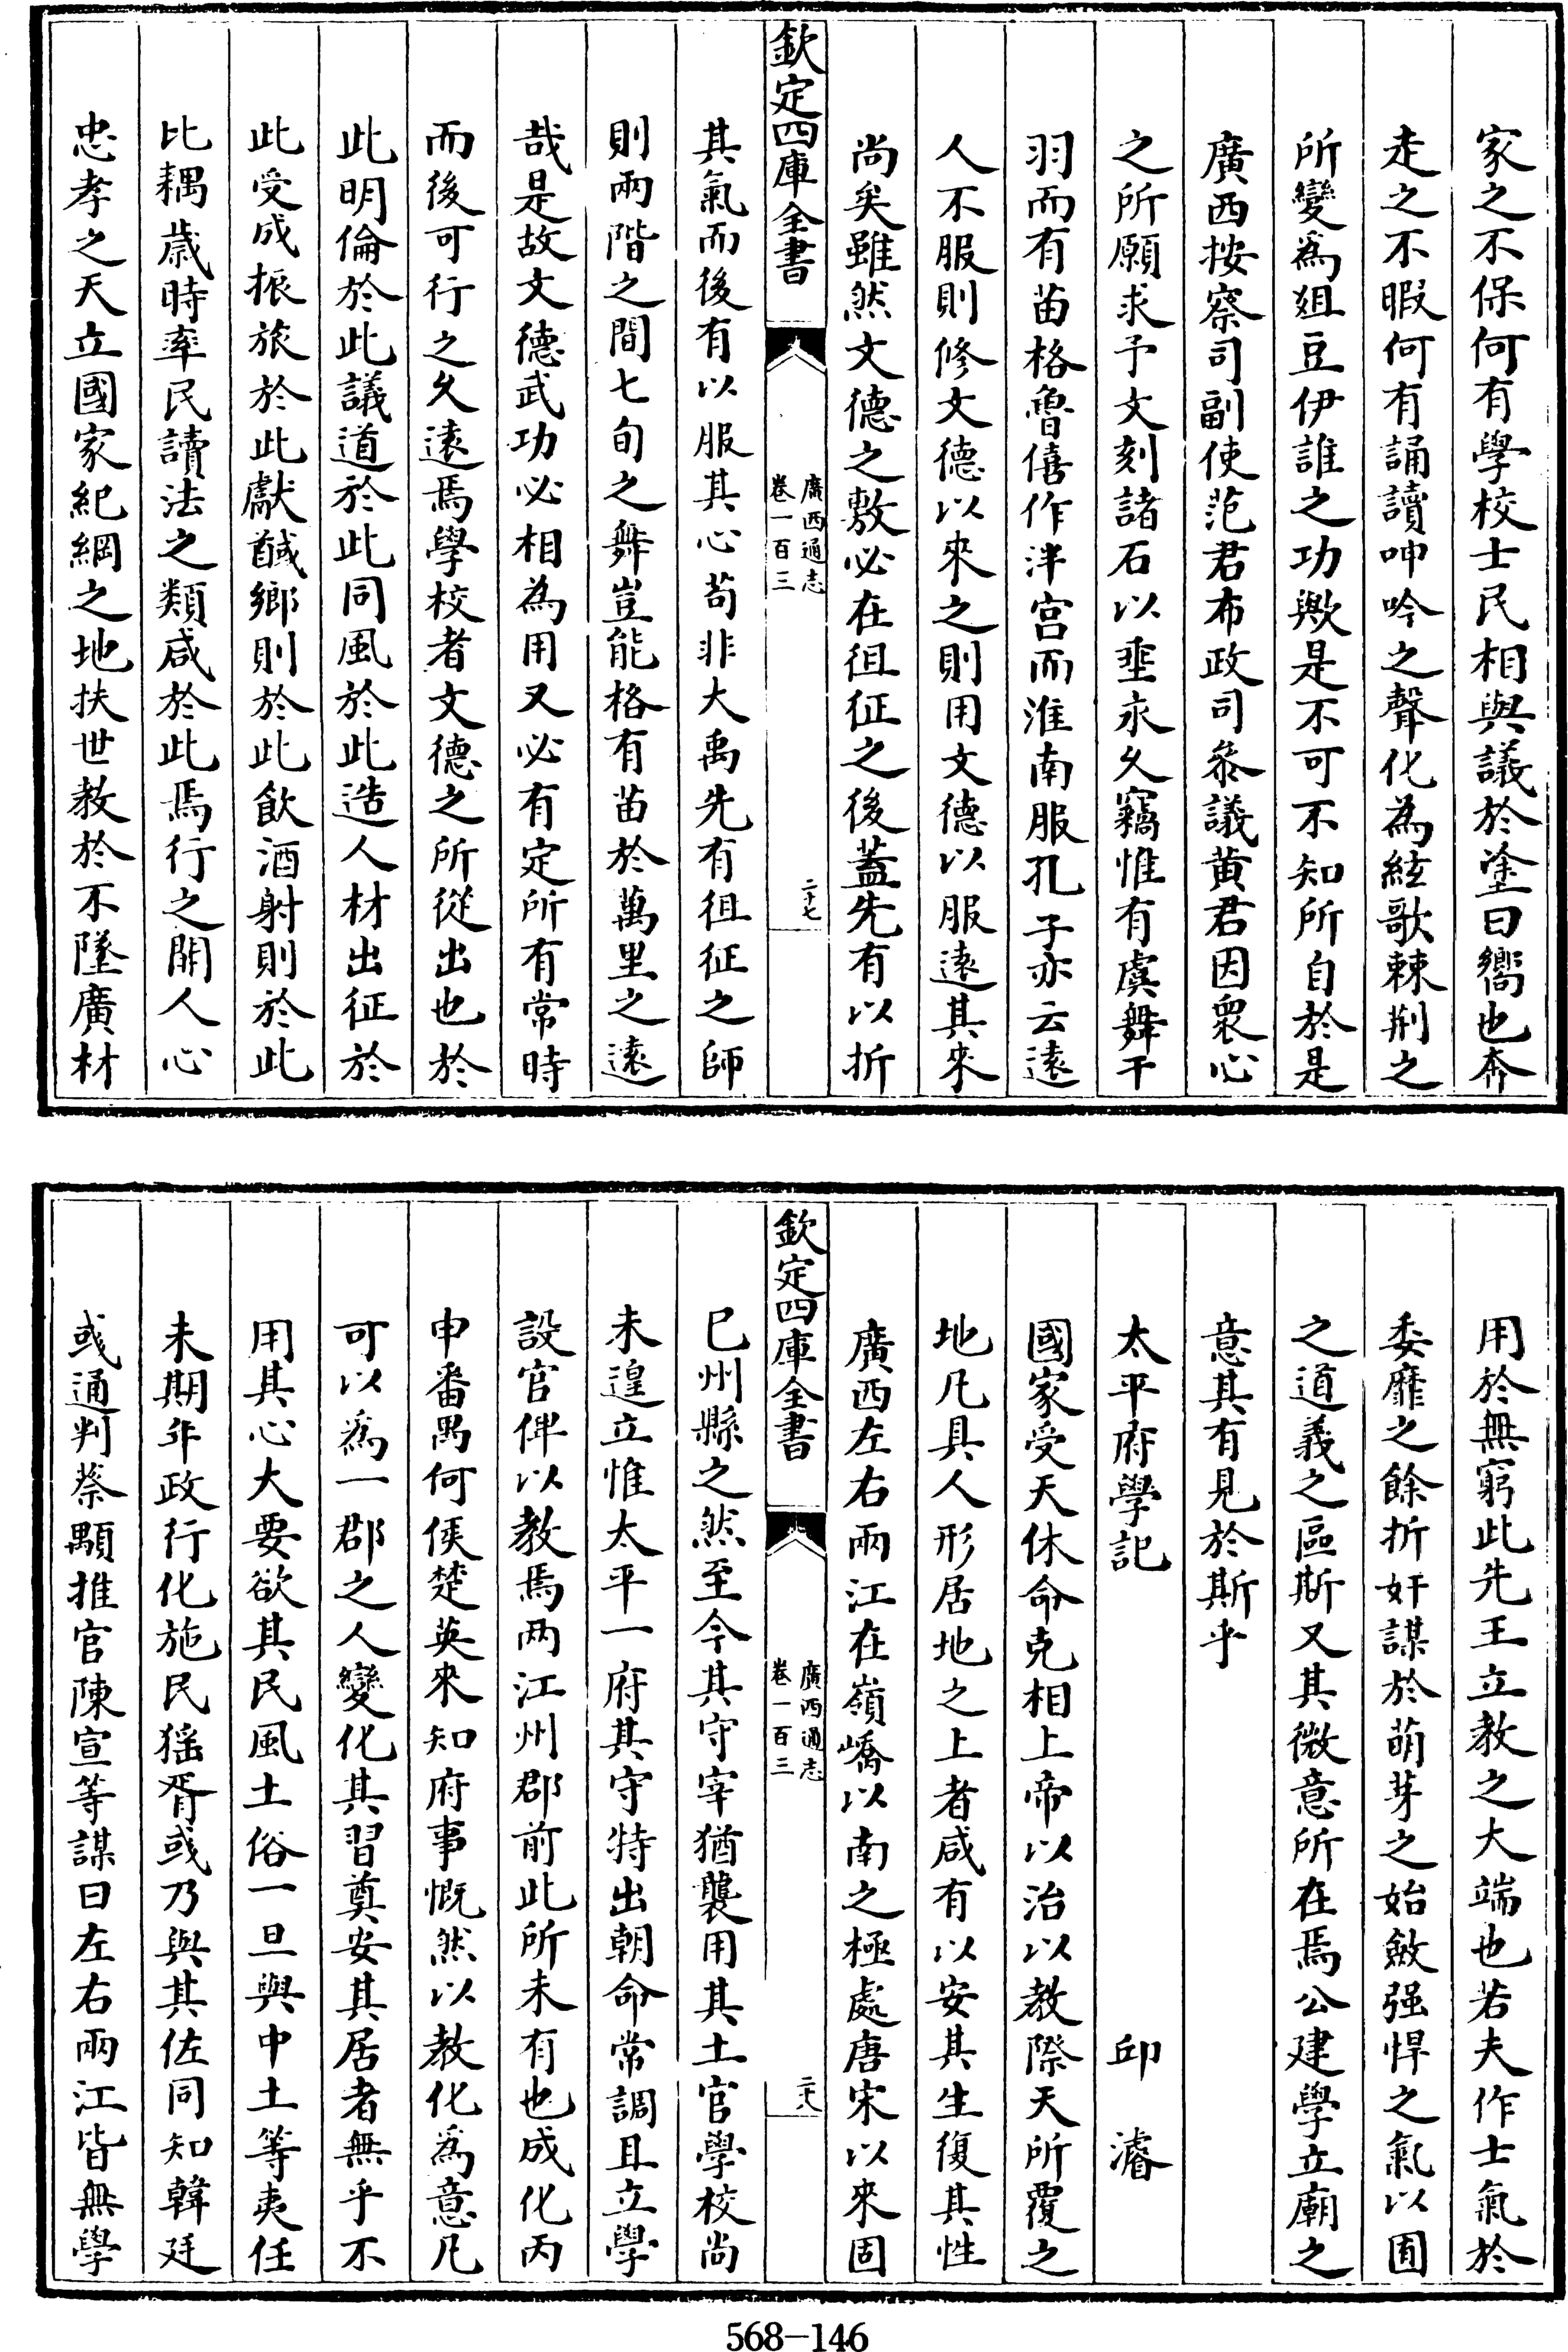 家之不保何有學校士民相與議於塗曰嚮也奔
走之不暇何有誦讀呻吟之聲化為絃歌棘荆之
所變爲俎豆伊誰之功歟是不可不知所自於是
廣西按察司副使范君布政司叅議黄君因衆心
之所願求予文刻諸石以垂永久竊惟有虞舞干
羽而有苗格魯僖作泮宫而淮南服孔子亦云逺
人不服則修文德以來之則用文德以服逺其來
尚矣雖然文德之敷必在徂征之後葢先有以折
欽定四庫全書
廣西通志
卷一百三
二十七
其氣而後有以服其心苟非大禹先有徂征之師
則兩階之間七旬之舞豈能格有苗於萬里之逺
哉是故文德武功必相為用又必有定所有常時
而後可行之久逺焉學校者文德之所從出也於
此明倫於此議道於此同風於此造人材出征於
此受成振旅於此獻馘鄉則於此飲酒射則於此
比耦歲時率民讀法之類咸於此焉行之開人心
忠孝之天立國家紀綱之地扶世教於不墜廣材
用於無窮此先王立教之大端也若夫作士氣於
委靡之餘折奸謀於萌芽之始斂强悍之氣以囿
之道義之區斯又其微意所在焉公建學立廟之
意其有見於斯乎
太平府學記　邱濬
國家受天休命克相上帝以治以教際天所覆之
地凡具人形居地之上者咸有以安其生復其性
廣西左右兩江在嶺嶠以南之極處唐宋以來固
欽定四庫全書
廣西通志
卷一百三
二十八
已州縣之然至今其守宰猶襲用其土官學校尚
未遑立惟太平一府其守特出朝命常調且立學
設官俾以教焉两江州郡前此所未有也成化丙
申番禺何侯楚英來知府事慨然以教化爲意凡
可以爲一郡之人變化其習奠安其居者無乎不
用其心大要欲其民風土俗一旦與中土等夷任
未期年政行化施民猺胥或乃與其佐同知韓廷
或通判蔡顒推官陳宣等謀曰左右兩江皆無學
568-146